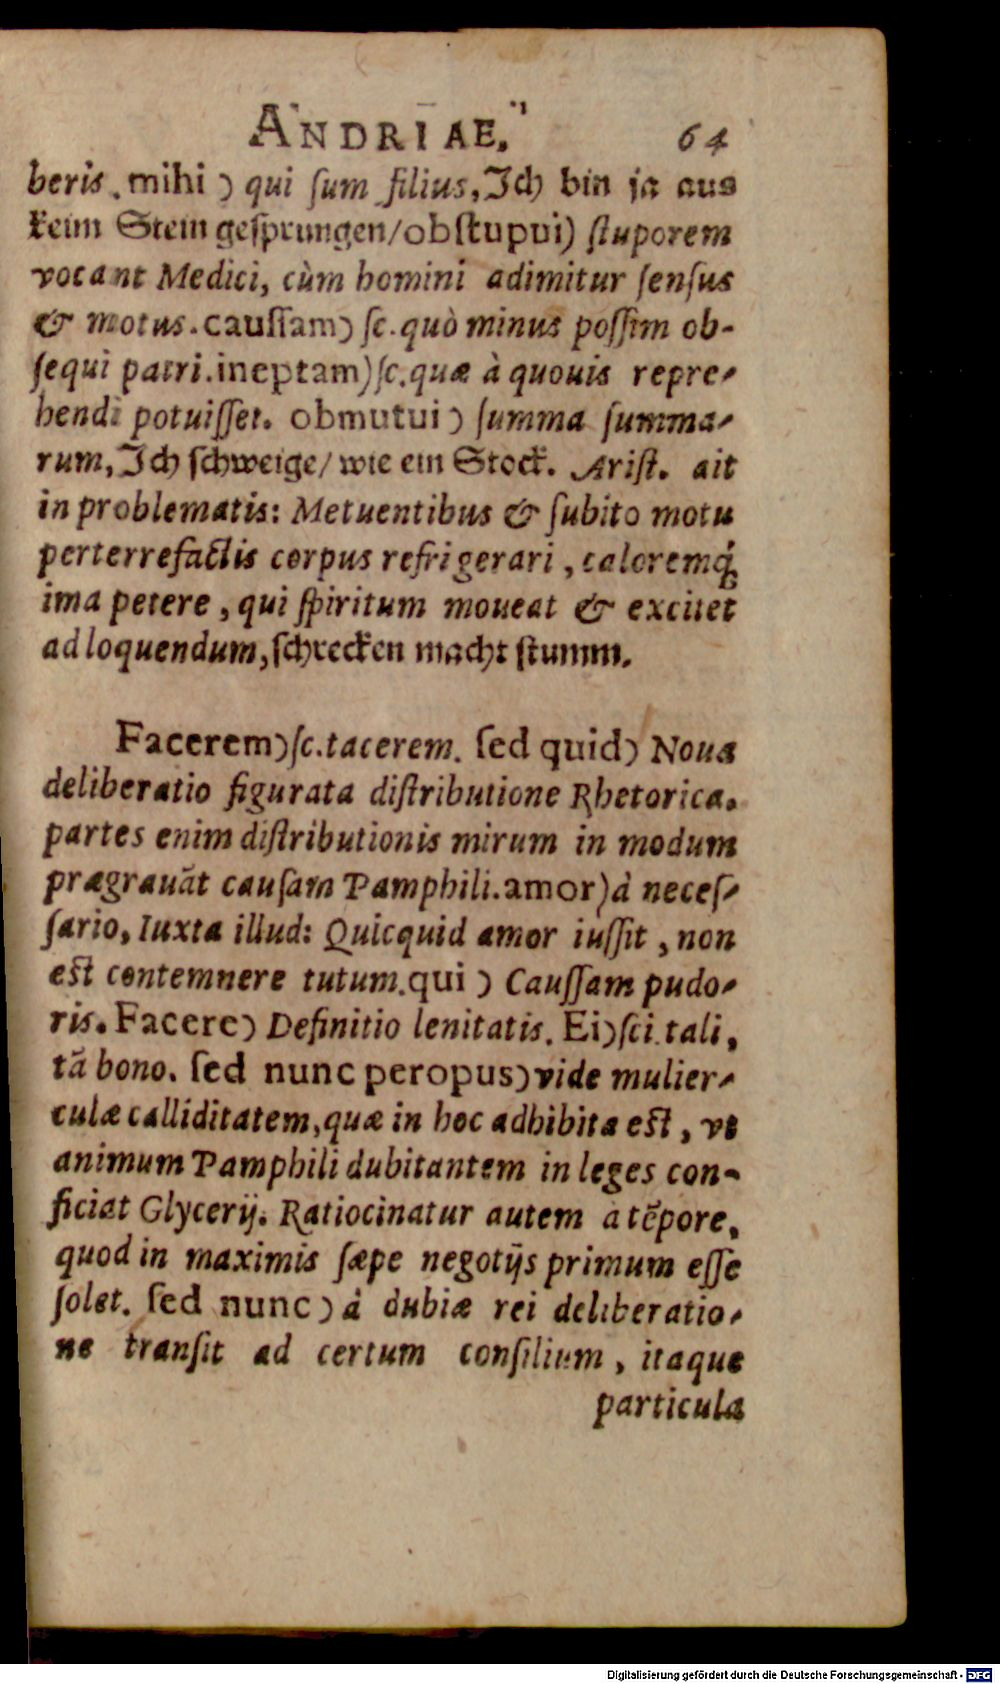 ANDRIAE. 64
beris. mihi) qui ſum filius, Ich bin ja aus
keim Stein geſprungen/obſtupui) ſtuporem
vocant Medici, cùm homini adimitur ſenſus
& motus. cauſſam) ſc. quò minus poſſim ob-
ſequi patri. ineptam) ſc. quæ à quouis repre-
hendi potuiſſet. obmutui) ſumma ſumma-
rum, Ich ſchweige/ wie ein Stock. Ariſt. ait
in problematis: Metuentibus & ſubito motu
perterrefactis corpus refrigerari, caloremq́;
ima petere, qui ſpiritum moueat & excitet
ad loquendum, ſchrecken macht ſtumm.
Facerem) ſc. tacerem. ſed quid) Noua
deliberatio figurata diſtributione Rhetorica.
partes enim diſtributionis mirum in modum
prægrauãt cauſam Pamphili. amor) à neceſ-
ſario, Iuxta illud: Quicquid amor iuſſit, non
eſt contemnere tutum. qui) Cauſſam pudo-
ris. Facere) Definitio lenitatis. Ei) ſci. tali,
tã bono. ſed nunc peropus) vide mulier-
culæ calliditatem, quæ in hoc adhibita eſt, vt
animum Pamphili dubitantem in leges con-
ficiat Glycerij. Ratiocinatur autem a tẽpore,
quod in maximis ſæpe negotijs primum eſſe
ſolet. ſed nunc) à dubiæ rei deliberatio-
ne tranſit ad certum conſilium, itaque
particula
Digitalisierung gefördert durch die Deutsche Forschungsgemeinschaft - DFG